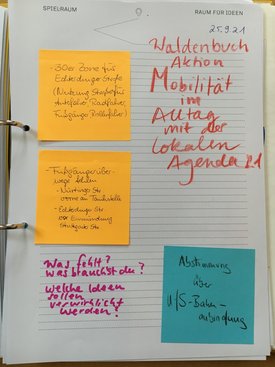 SPIELRAUM
RAUM FÜR IDEEN
25.9.21
Waldenbuch
Aktion
Mobilität
im
Alltag
mit der
lokalen
Agenda 21
- 30er Zone für
Echterdinger Straße
(Nutzung Straße für
Autofahrer, Radfahrer,
Fußgänger, Rollifahrer)
- Fußgängerüber-
wege fehlen
- Nürtinger Str
vorne an Tankstelle
- Echterdinger Str
Einmündung
Stuttgarter Str
Was fehlt?
was brauchst du?
welche Ideen
sollen
verwirklicht
werden?
Abstimmung
über
U/S-Bahn-
anbindung